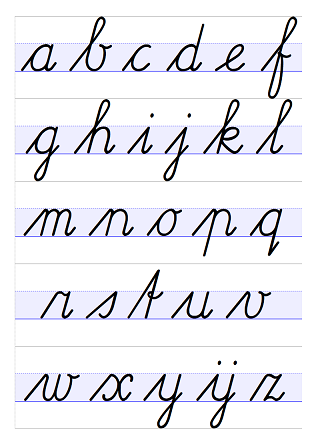 a b c d e f
g h i j k l
m n o p q
r s t u v
w x y ij z